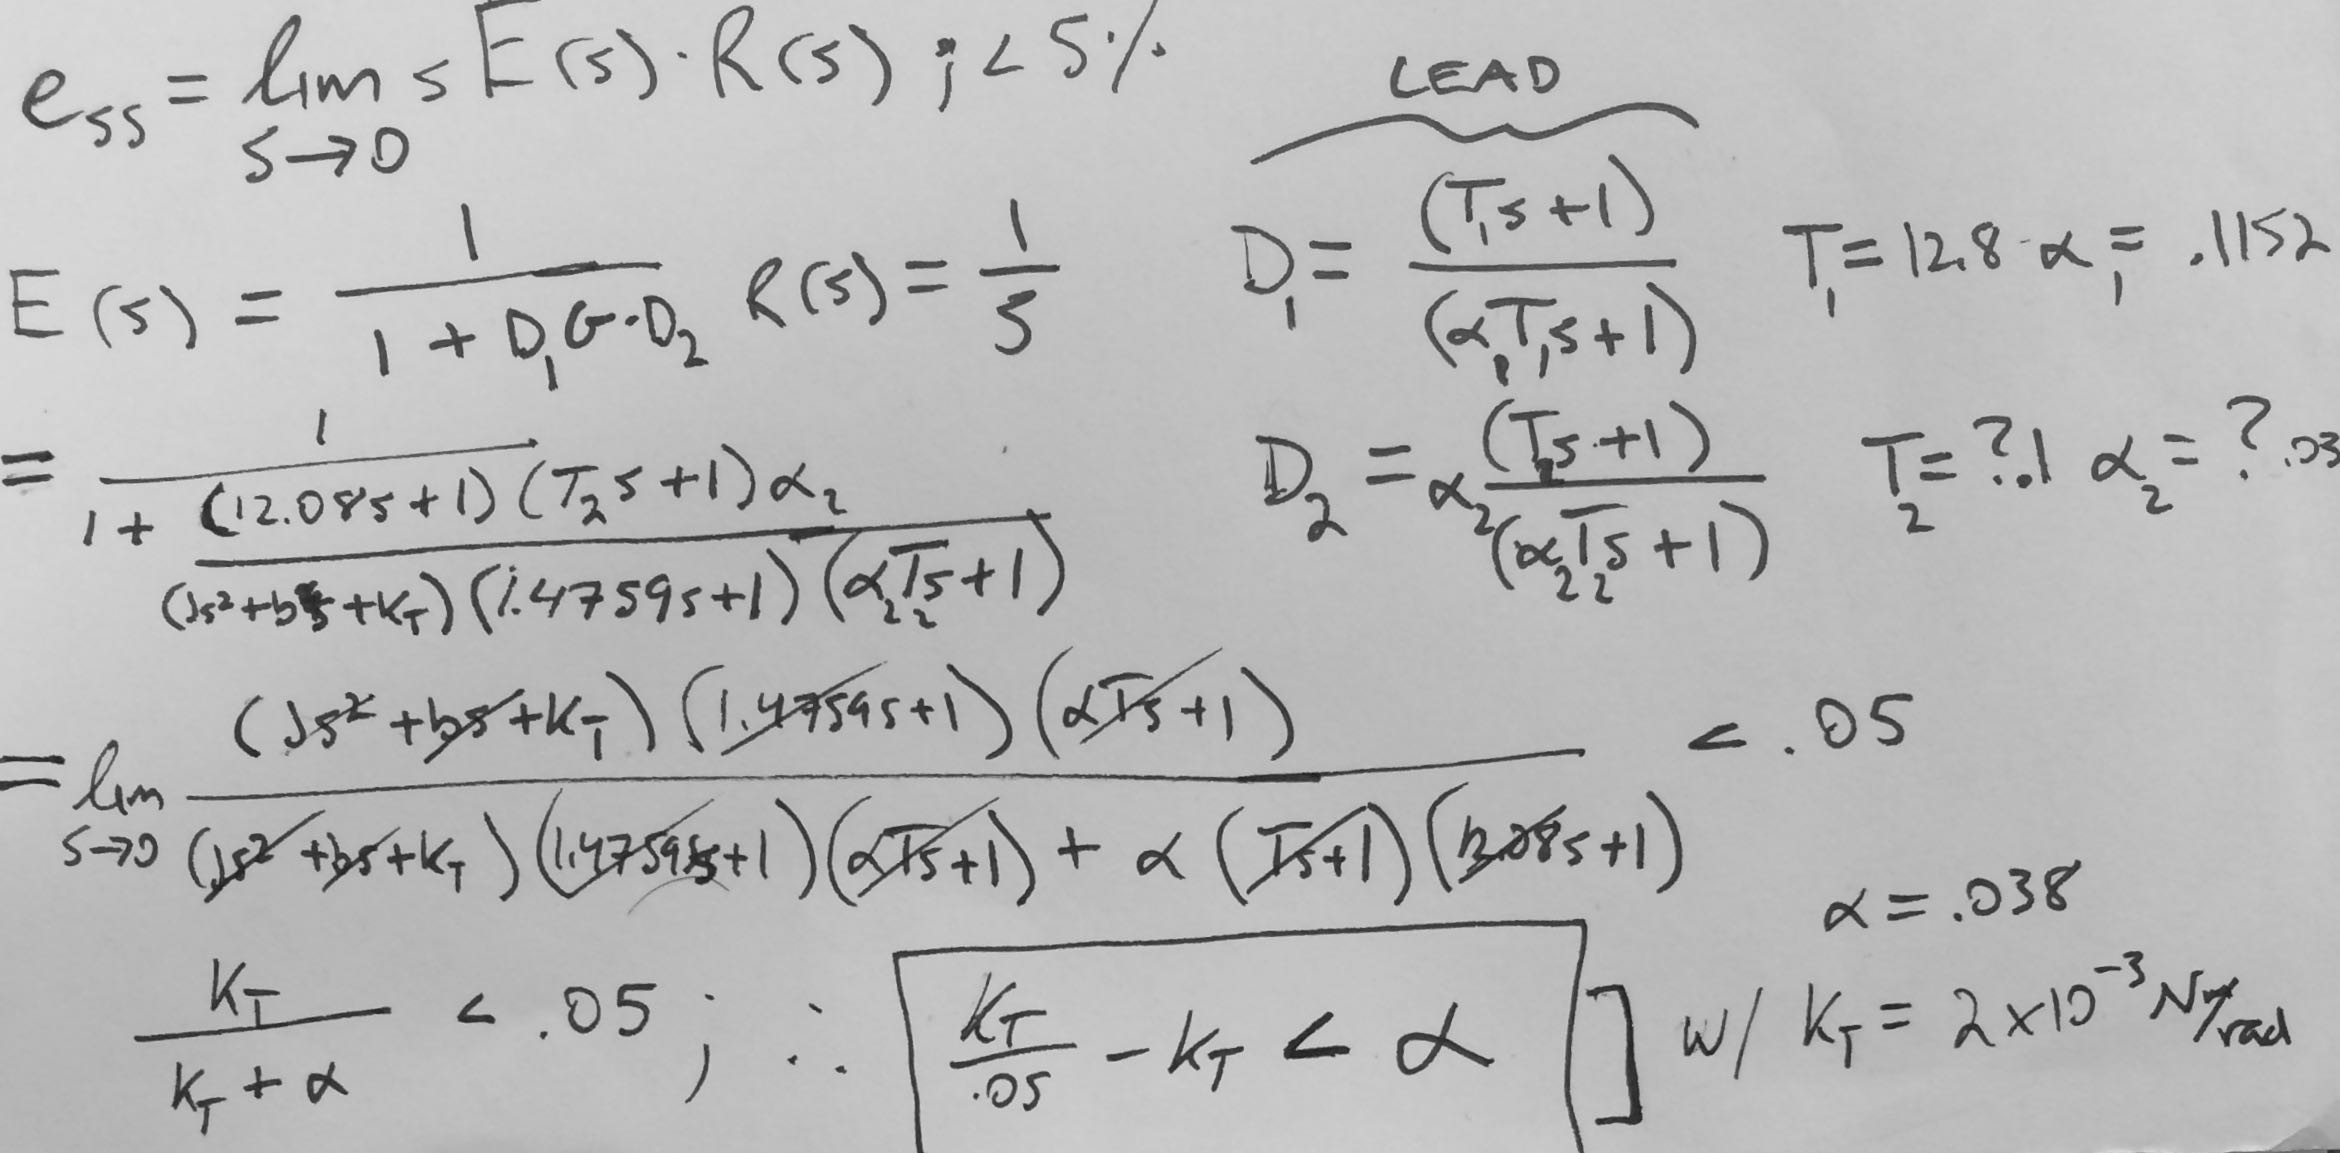 e_ss = lim s→0 s E(s)·R(s) ; < 5%
LEAD
E(s) = 1 / (1 + D₁G·D₂) R(s) = 1/s
D₁ = (T₁s+1) / (α₁T₁s+1) T₁ = 12.8 α₁ = .1152
= 1 / (1 + (12.08s+1)(T₂s+1)α₂ / ((Js²+bs+K_T)(1.4759s+1)(α₂T₂s+1)))
D₂ = α₂ (T₂s+1) / (α₂T₂s+1) T₂ = ? .1 α₂ = ? .03
= lim s→0 (Js²+bs+K_T)(1.4759s+1)(αTs+1) / ((Js²+bs+K_T)(1.4759s+1)(αTs+1) + α(Ts+1)(12.08s+1)) < .05
α = .038
K_T / (K_T + α) < .05 ; ∴ K_T/.05 − K_T < α ] w/ K_T = 2×10⁻³ Nm/rad